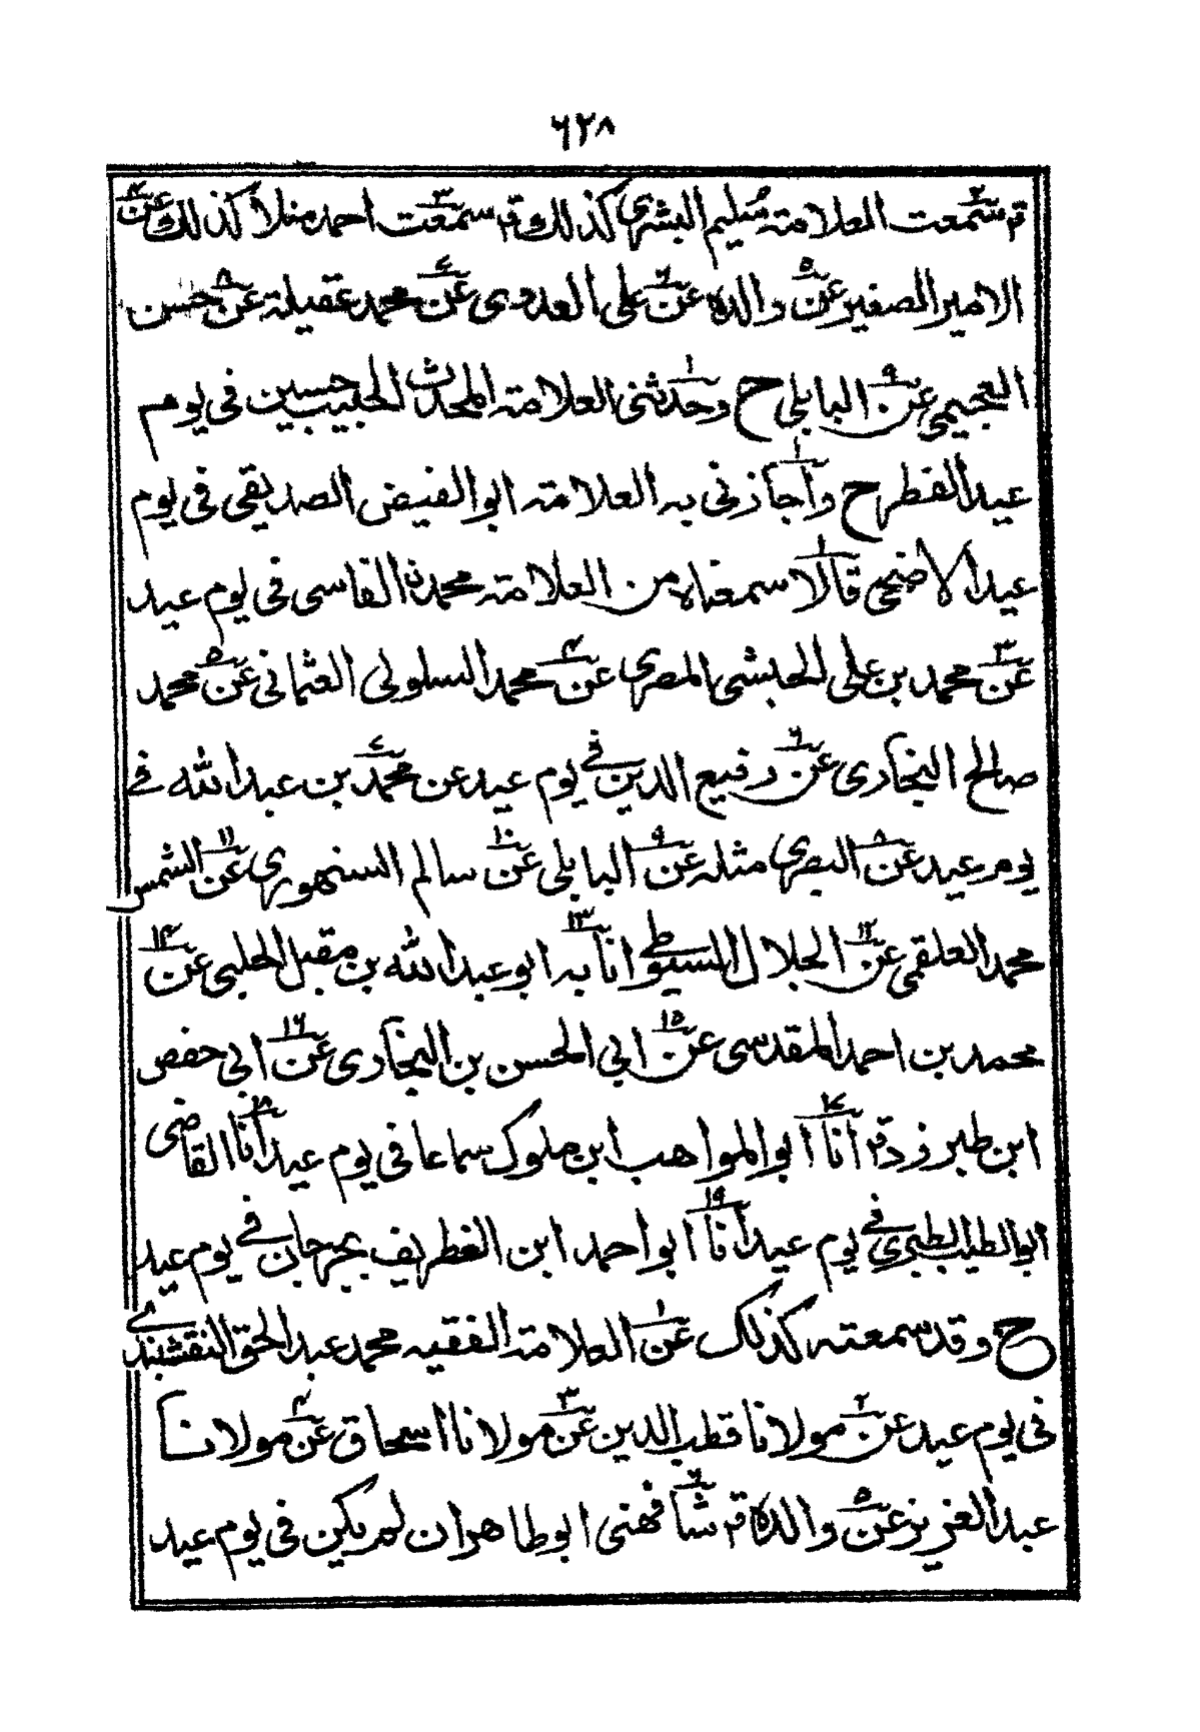 ٦٢٨
قـ سمعت العلامة سليم البشري كذلك قـ سمعت احمد منلا كذلك عن
الامير الصغير عن والده عن علي العدوى عن محمد عقيلة عن حسن
العجيمي عن البابلي ح وحدثنى العلامة المحدث الحبيب حسين فى يوم
عيد الفطر ح وأجازنى به العلامة ابو الفيض الصديقى فى يوم
عيد الاضحى قالا سمعناه من العلامة محمد القاسى فى يوم عيد
عن محمد بن على الحبشى المصرى عن محمد السلولى العثمانى عن محمد
صالح البخارى عن رفيع الدين فى يوم عيد عن محمد بن عبد الله فى
يوم عيد عن البصرى مثله عن البابلى عن سالم السنهورى عن الشمس
محمد العلقمى عن الجلال السيوطى انا به ابو عبد الله بن مقبل الحلبى عن
محمد بن احمد المقدسى عن ابي الحسن بن البخارى عن ابي حفص
ابن طبرزد قـ انا ابو المواهب ابن ملوك سماعا فى يوم عيد انا القاضى
ابو الطيب الطبرى فى يوم عيد انا ابو احمد ابن الغطريف بجرجان فى يوم عيد
ح وقد سمعته كذلك عن العلامة الفقيه محمد عبد الحق النقشبندى
فى يوم عيد عن مولانا قطب الدين عن مولانا اسحاق عن مولانا
عبد العزيز عن والده قـ شافهنى ابو طاهر ان لم يكن فى يوم عيد